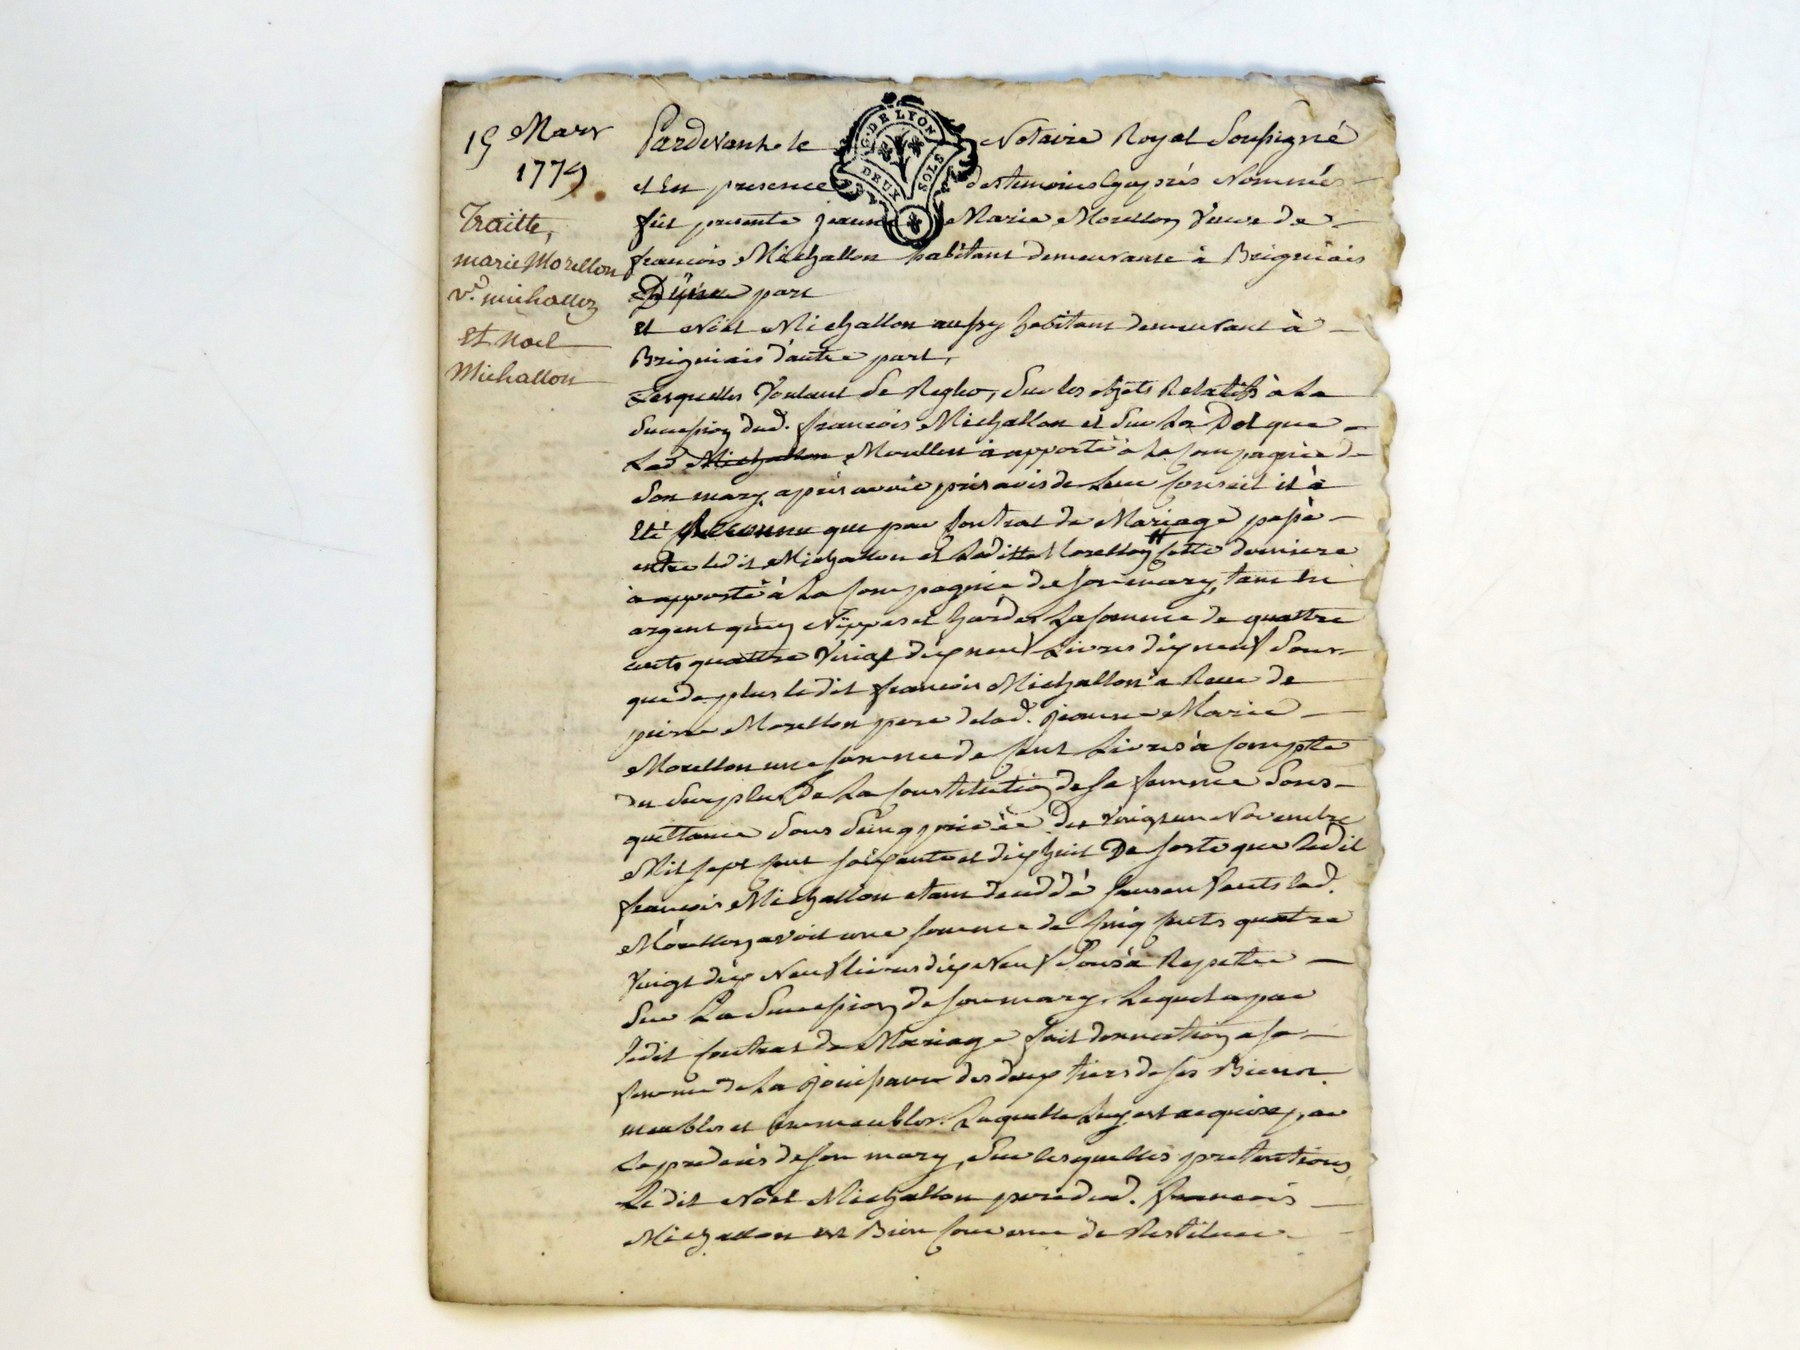 15 Mars
1779
Traitté,
marie Morellon
v.e michallon
et Noel
Michallon
G. DE LYON
DEUX SOLS
Pardevant le Notaire Royal Soussigné
et En presence des temoins cy après Nommés
fut presente jeanne Marie Morellon Veuve de
francois Michallon habitant demeurante à Brignais
D'une part
Et Noël Michallon aussy habitant demeurant à
Brignais d'autre part,
Lesquelles Voulant Se Regler, Sur les objets Relatifs à La
Succession dud. francois Michallon et Sur La Dot que
Lad. Michallon Morellon à apporté à la Compagnie de
Son mary après avoir pris avis de Leur Conseil il à
Eté Reconnu que par Contrat de Mariage passé
entre ledit Michallon et Laditte Morellon Cette derniere
à apporté à La Compagnie de Son mary, tant En
argent qu'en Nippes et hardes La Somme de quattre
cents quattre Vingt dix neuf Livres dix neuf Sous
que de plus ledit francois Michallon a Recu de
pierre Morellon pere de lad. jeanne Marie
Morellon une Somme de Cent Livres à Compte
du Surplus De La Constitution de Sa femme Sous
quittance Sous Seing privée du Vingt un Novembre
Mil sept Cent soixante et dix huit De sorte que Ledit
francois Michallon etant decedé Sans enfants lad.
Morellon avoit une Somme de Cinq Cents quatre
Vingt dix Neuf livres dix Neuf Sous à Repetter
Sur La Succession de Son mary, Lequel a par
ledit Contrat de Mariage fait donnation a Sa
femme de La jouissance des deux tiers de Ses Biens
meubles et immeubles. Laquelle Luy est acquise, au
Le predecés de Son mary, Sur lesquelles pretentions
Le dit Noël Michallon pere dud. francois
Michallon est Bien Convenu de Restituer